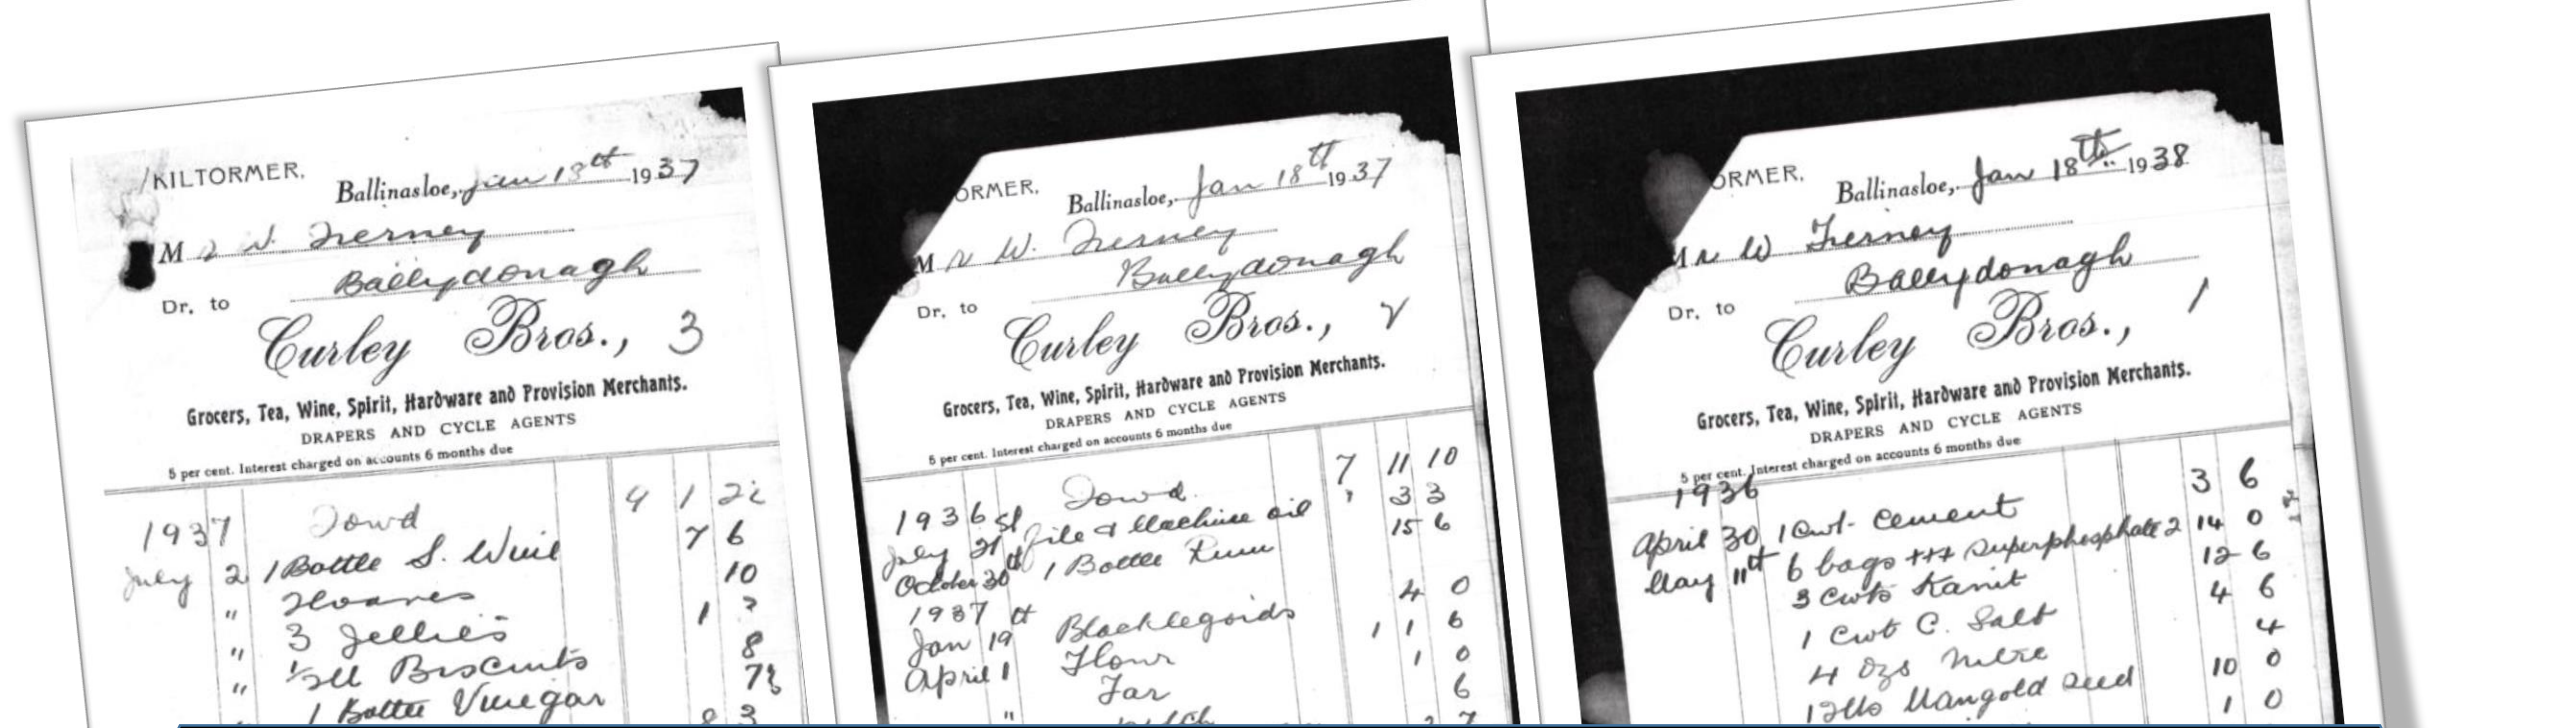 KILTORMER.
Ballinasloe, Jan 18th 1937
Mr W. Tierney
Ballydonagh
Dr. to
Curley Bros., 3
Grocers, Tea, Wine, Spirit, Hardware and Provision Merchants.
DRAPERS AND CYCLE AGENTS
5 per cent. Interest charged on accounts 6 months due
1937 Forwd 9 1 2½
July 2 1 Bottle S. Wine 7 6
" 10
" 3 Jellies 1
" Biscuits 8
" 1 Bottle Vinegar 7½
8 3
ORMER.
Ballinasloe, Jan 18th 1937
Mr W. Tierney
Ballydonagh
Dr. to
Curley Bros., 2
Grocers, Tea, Wine, Spirit, Hardware and Provision Merchants.
DRAPERS AND CYCLE AGENTS
5 per cent. Interest charged on accounts 6 months due
Forwd 7 11 10
1936
July 21st file & Machine oil " 3 3
October 30th 1 Bottle Rum 15 6
1937
Jan 19th Blacklegoids 4 0
April 1 Flour 1 1 6
Tar 1 0
" Pitch 6
ORMER.
Ballinasloe, Jan 18th 1938
Mr W Tierney
Ballydonagh
Dr. to
Curley Bros., 1
Grocers, Tea, Wine, Spirit, Hardware and Provision Merchants.
DRAPERS AND CYCLE AGENTS
5 per cent. Interest charged on accounts 6 months due
1936
April 30 1 Cwt Cement 3 6
May 11th 6 bags +++ Superphosphate 2 14 0
3 Cwts Kanit 12 6
1 Cwt C. Salt 4 6
4 Ozs Nitre 4
12 lbs Mangold Seed 10 0
1 0